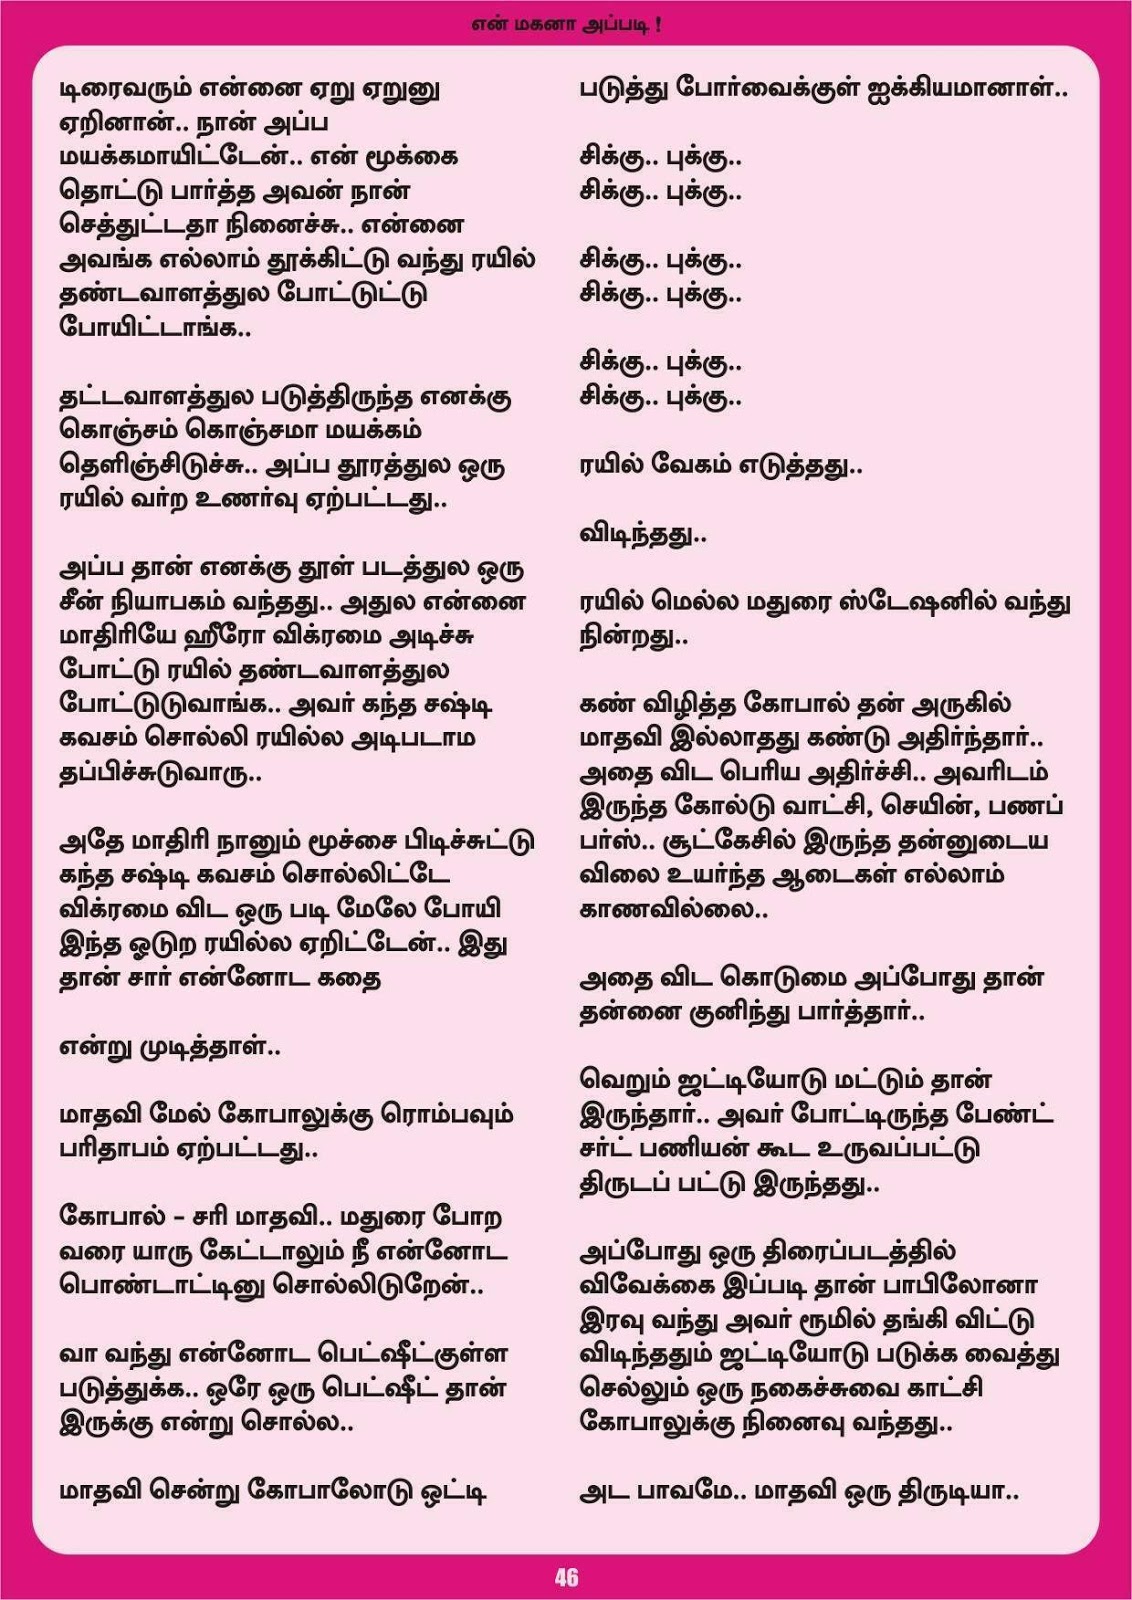 என் மகனா அப்படி !
டிரைவரும் என்னை ஏறு ஏறுனு
ஏறினான்.. நான் அப்ப
மயக்கமாயிட்டேன்.. என் மூக்கை
தொட்டு பார்த்த அவன் நான்
செத்துட்டதா நினைச்சு.. என்னை
அவங்க எல்லாம் தூக்கிட்டு வந்து ரயில்
தண்டவாளத்துல போட்டுட்டு
போயிட்டாங்க..
தட்டவாளத்துல படுத்திருந்த எனக்கு
கொஞ்சம் கொஞ்சமா மயக்கம்
தெளிஞ்சிடுச்சு.. அப்ப தூரத்துல ஒரு
ரயில் வர்ற உணர்வு ஏற்பட்டது..
அப்ப தான் எனக்கு தூள் படத்துல ஒரு
சீன் நியாபகம் வந்தது.. அதுல என்னை
மாதிரியே ஹீரோ விக்ரமை அடிச்சு
போட்டு ரயில் தண்டவாளத்துல
போட்டுடுவாங்க.. அவர் கந்த சஷ்டி
கவசம் சொல்லி ரயில்ல அடிபடாம
தப்பிச்சுடுவாரு..
அதே மாதிரி நானும் மூச்சை பிடிச்சுட்டு
கந்த சஷ்டி கவசம் சொல்லிட்டே
விக்ரமை விட ஒரு படி மேலே போயி
இந்த ஓடுற ரயில்ல ஏறிட்டேன்.. இது
தான் சார் என்னோட கதை
என்று முடித்தாள்..
மாதவி மேல் கோபாலுக்கு ரொம்பவும்
பரிதாபம் ஏற்பட்டது..
கோபால் – சரி மாதவி.. மதுரை போற
வரை யாரு கேட்டாலும் நீ என்னோட
பொண்டாட்டினு சொல்லிடுறேன்..
வா வந்து என்னோட பெட்ஷீட்குள்ள
படுத்துக்க.. ஒரே ஒரு பெட்ஷீட் தான்
இருக்கு என்று சொல்ல..
மாதவி சென்று கோபாலோடு ஒட்டி
படுத்து போர்வைக்குள் ஐக்கியமானாள்..
சிக்கு.. புக்கு..
சிக்கு.. புக்கு..
சிக்கு.. புக்கு..
சிக்கு.. புக்கு..
சிக்கு.. புக்கு..
சிக்கு.. புக்கு..
ரயில் வேகம் எடுத்தது..
விடிந்தது..
ரயில் மெல்ல மதுரை ஸ்டேஷனில் வந்து
நின்றது..
கண் விழித்த கோபால் தன் அருகில்
மாதவி இல்லாதது கண்டு அதிர்ந்தார்..
அதை விட பெரிய அதிர்ச்சி.. அவரிடம்
இருந்த கோல்டு வாட்சி, செயின், பணப்
பர்ஸ்.. சூட்கேசில் இருந்த தன்னுடைய
விலை உயர்ந்த ஆடைகள் எல்லாம்
காணவில்லை..
அதை விட கொடுமை அப்போது தான்
தன்னை குனிந்து பார்த்தார்..
வெறும் ஜட்டியோடு மட்டும் தான்
இருந்தார்.. அவர் போட்டிருந்த பேண்ட்
சர்ட் பணியன் கூட உருவப்பட்டு
திருடப் பட்டு இருந்தது..
அப்போது ஒரு திரைப்படத்தில்
விவேக்கை இப்படி தான் பாபிலோனா
இரவு வந்து அவர் ரூமில் தங்கி விட்டு
விடிந்ததும் ஜட்டியோடு படுக்க வைத்து
செல்லும் ஒரு நகைச்சுவை காட்சி
கோபாலுக்கு நினைவு வந்தது..
அட பாவமே.. மாதவி ஒரு திருடியா..
46